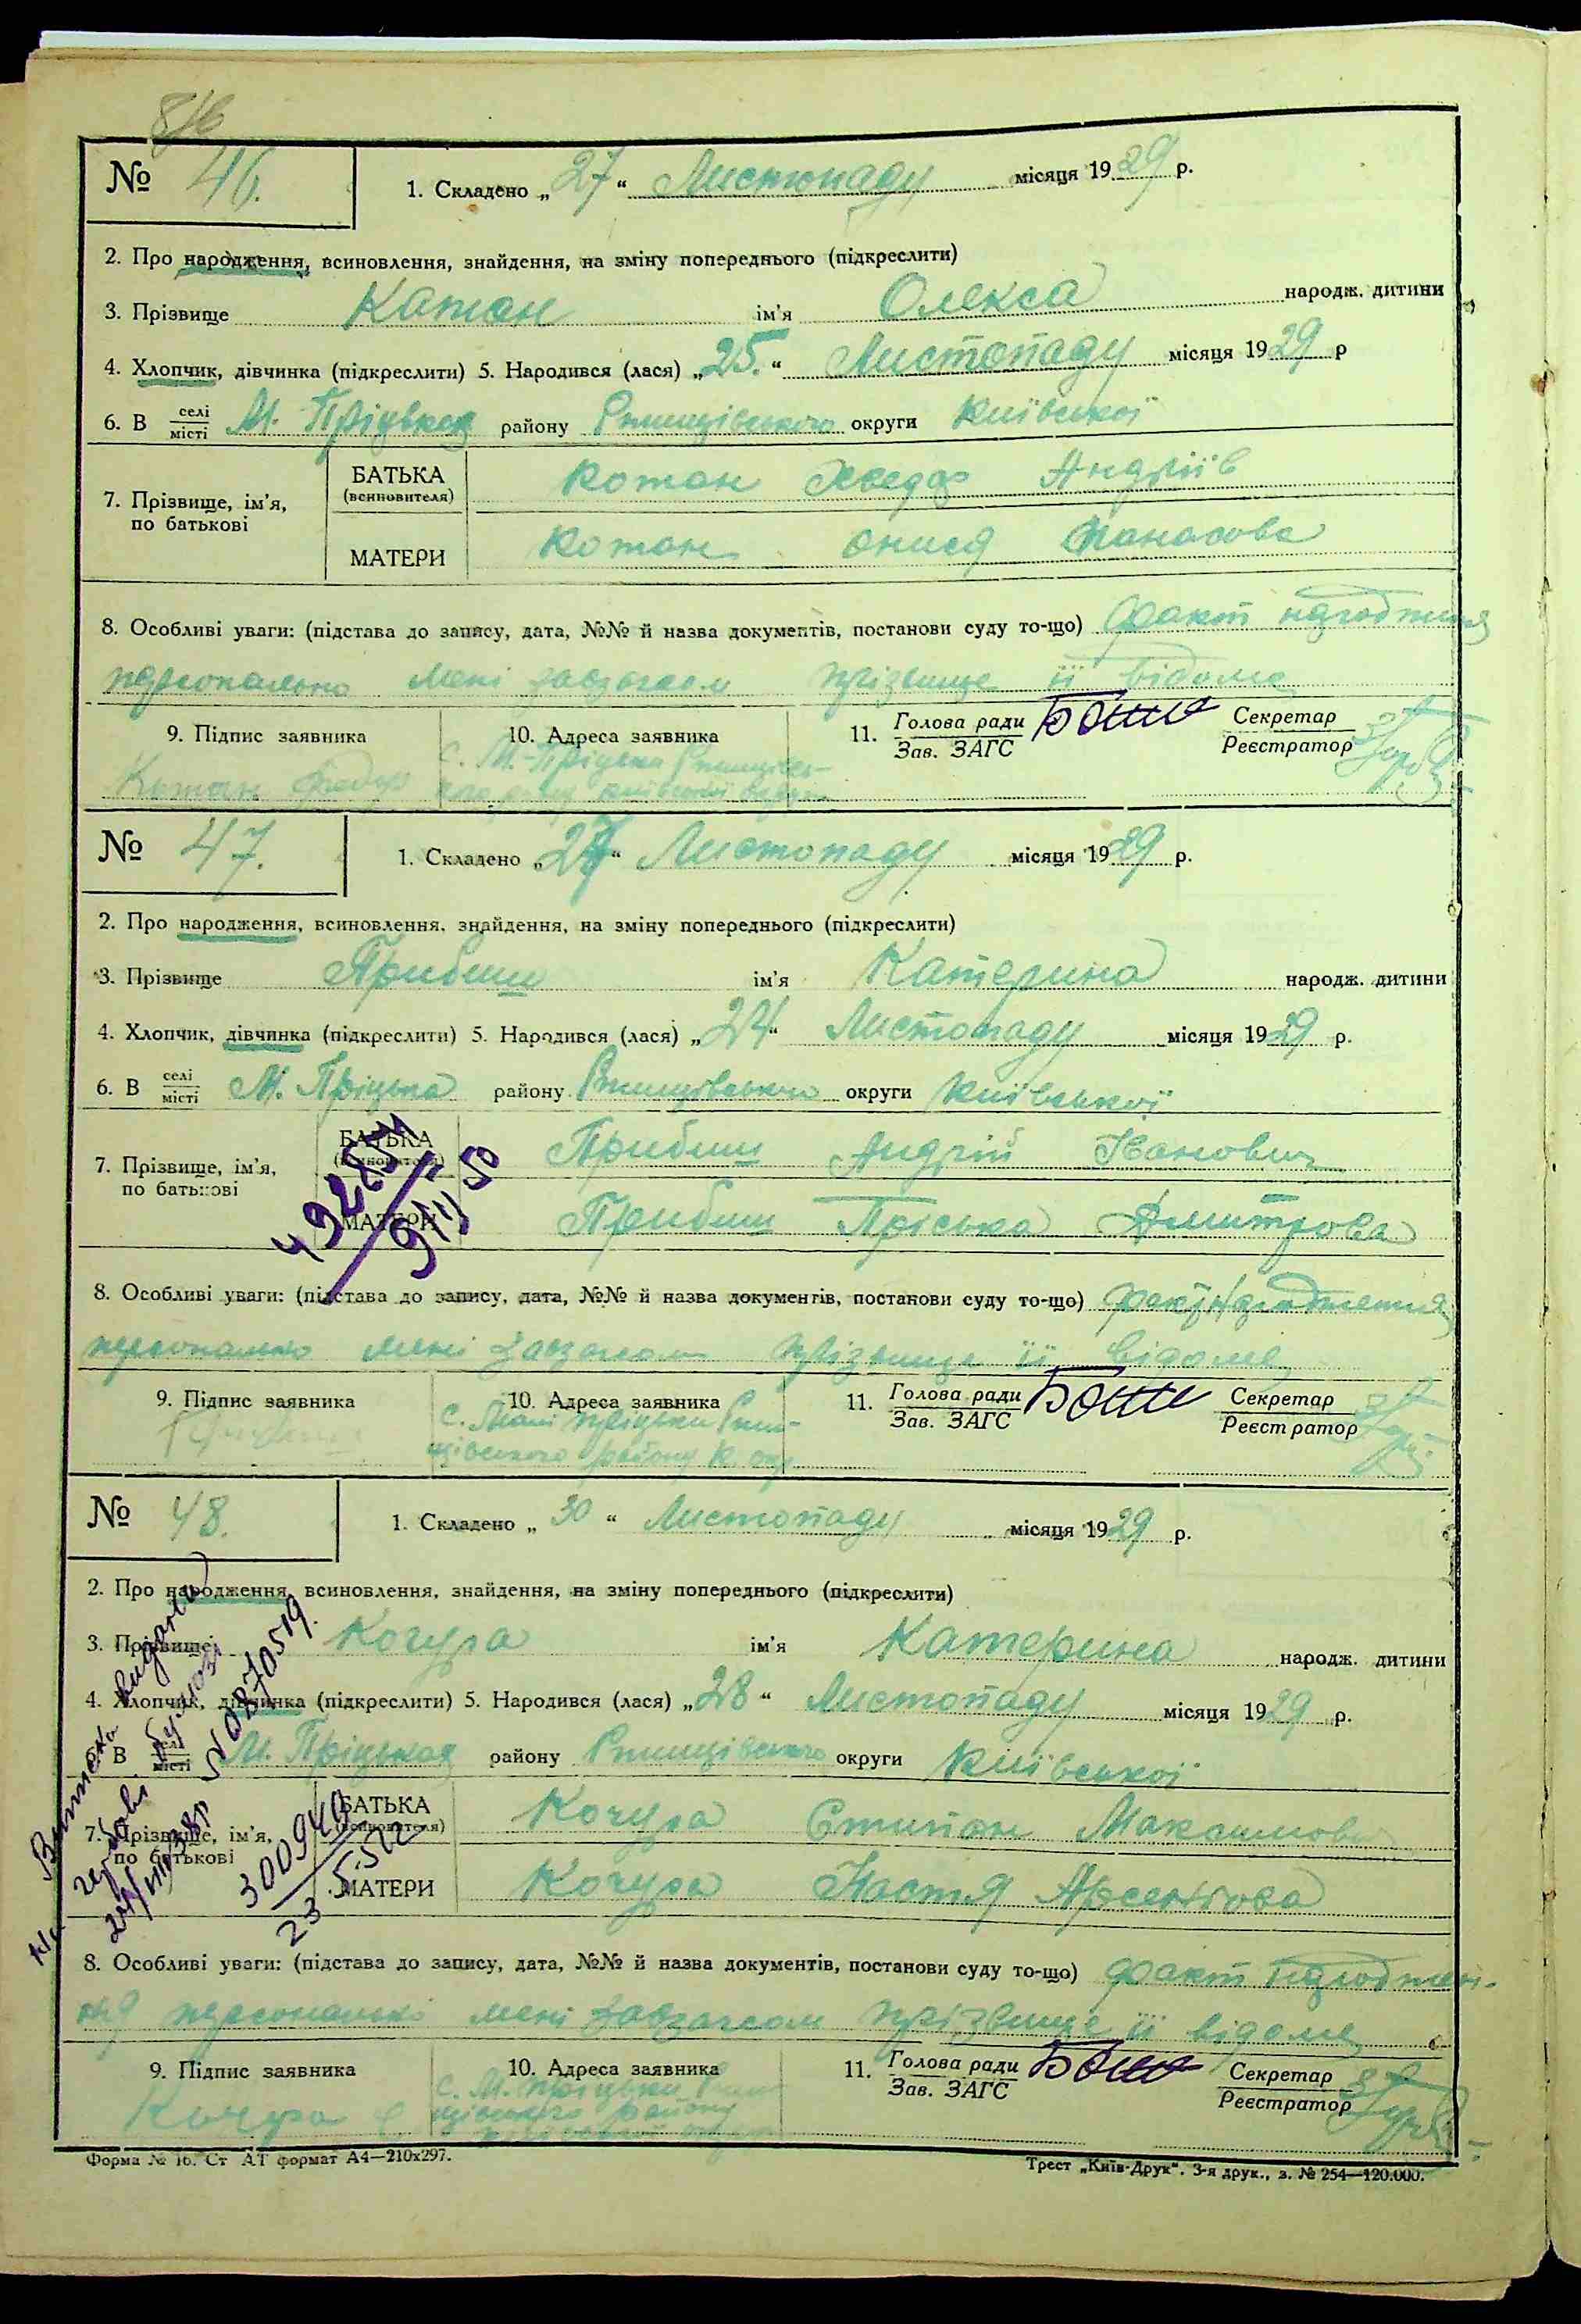 № 46. 1. Складено „27“ Листопаду місяця 1929 р.
2. Про народження, всиновлення, знайдення, на зміну попереднього (підкреслити)
3. Прізвище Катан ім'я Олекса народж. дитини
4. Хлопчик, дівчинка (підкреслити) 5. Народився (лася) „25.“ Листопаду місяця 1929 р
6. В селі місті М. Пріцьках району Ржищівського округи Київської
7. Прізвище, ім'я, по батькові
БАТЬКА (всиновителя) Котан Хведор Андріїв
МАТЕРИ Котан Онися Панасова
8. Особливі уваги: (підстава до запису, дата, №№ й назва документів, постанови суду то-що) факт народження
персонально мені прізвище її відоме
9. Підпис заявника 10. Адреса заявника 11. Голова ради Зав. ЗАГС Секретар Реєстратор
Котан Федор С. М.-Пріцьки Ржищівсь-
київської округи
№ 47. 1. Складено „27“ Листопаду місяця 1929 р.
2. Про народження, всиновлення, знайдення, на зміну попереднього (підкреслити)
3. Прізвище Прибиш ім'я Катерина народж. дитини
4. Хлопчик, дівчинка (підкреслити) 5. Народився (лася) „24“ Листопаду місяця 1929 р.
6. В селі місті М. Пріцька району Ржищівського округи Київської
7. Прізвище, ім'я, по батькові
БАТЬКА (всиновителя) Прибиш Андрій Іванович
МАТЕРИ Прибиш Пріська Дмитрова
8. Особливі уваги: (підстава до запису, дата, №№ й назва документів, постанови суду то-що) факт народження
персонально мені прізвище її відоме
9. Підпис заявника 10. Адреса заявника 11. Голова ради Зав. ЗАГС Секретар Реєстратор
С. Малі Пріцьки Ржи-
щівського району К окр
№ 48. 1. Складено „30“ Листопаду місяця 1929 р.
2. Про народження, всиновлення, знайдення, на зміну попереднього (підкреслити)
3. Прізвище Кочура ім'я Катерина народж. дитини
4. Хлопчик, дівчинка (підкреслити) 5. Народився (лася) „28“ Листопаду місяця 1929 р.
6. В селі місті М. Пріцьках району Ржищівського округи Київської
7. Прізвище, ім'я, по батькові
БАТЬКА (всиновителя) Кочура Степан Максимов
МАТЕРИ Кочура Настя Арсентова
8. Особливі уваги: (підстава до запису, дата, №№ й назва документів, постанови суду то-що) факт народжен-
ня персонально мені прізвище її відоме
9. Підпис заявника 10. Адреса заявника 11. Голова ради Зав. ЗАГС Секретар Реєстратор
Кочура С С. М. Пріцьки Ржи
щівського району
Форма № 16. Ст АТ формат А4—210х297. Трест „Київ-Друк“. 3-я друк., з. № 254—120.000.